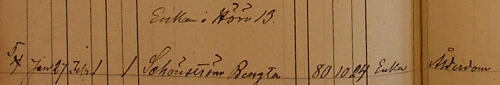 Enkan i Hörn 13.
Jan 27 Feb 1 1 Schönström Bengta 80 10 24 Enka Ålderdom